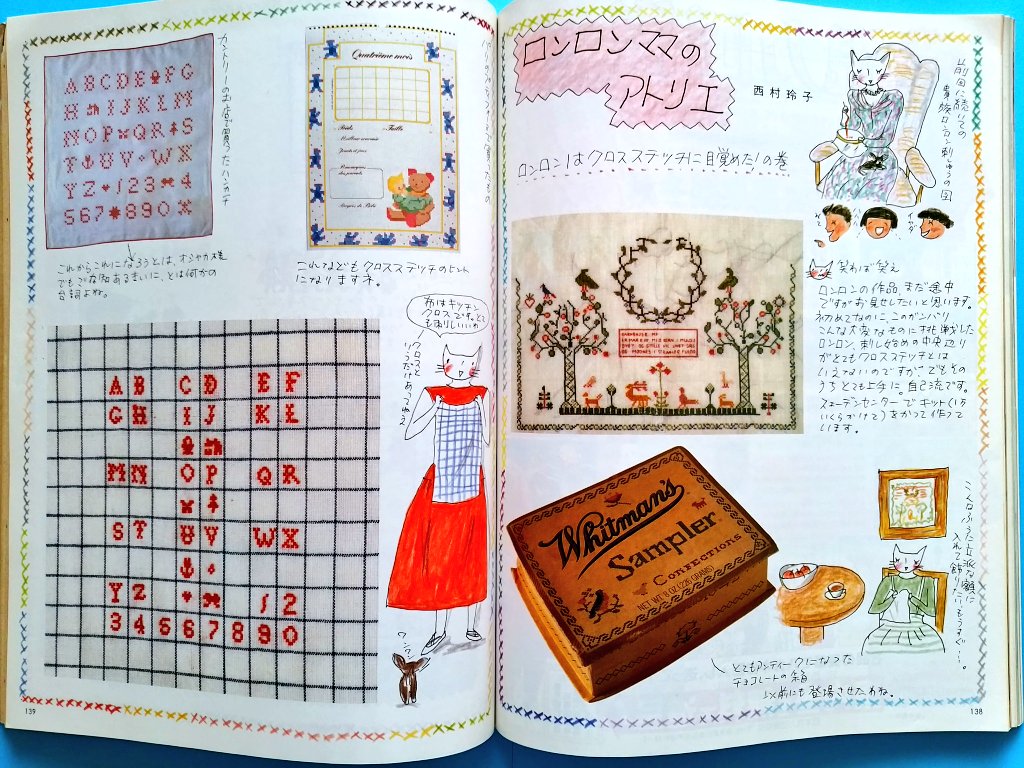 ロンロンママの
アトリエ
西村玲子
ロンロンはクロスステッチに目覚めた!の巻
前回に続いての
貴族ロンロン刺しゅうの図
笑わば笑え
ロンロンの作品、まだ途中
ですがお見せしたいと思います。
初めてなのに、このガンバリ
こんな大変なものに挑戦した
ロンロン、刺し始めの中央辺り
がとてもクロスステッチとは
いえないのですが、でもその
うちとても上手に、自己流です。
スウェーデンセンターでキット(1万
いくらかけて)をかって作って
います。
こんなふうな立派な額に
入れて飾りたい、もうすぐ……。
Whitman's
Sampler
Confections
NET WT 8 OZ (226 GRAMS)
とてもアンティークになった
チョコレートの箱
以前にも登場させたわね。
138
カントリーのお店で買ったハンカチ
ABCDEFG
HIJKLM
NOPQRS
TUVWX
YZ1234
567890
Quatrième mois
Poids
Taille
これからこれになろうとは、オシャカ様
でもご存知あるまいに、とは何かの
台詞よね。
これなどもクロスステッチのヒント
になりますネ。
布はキッチン
クロスです。とて
もほりしいいわ
AB CD EF
GH IJ KL
MN OP QR
ST UV WX
YZ 12
34567890
ワンワン
139